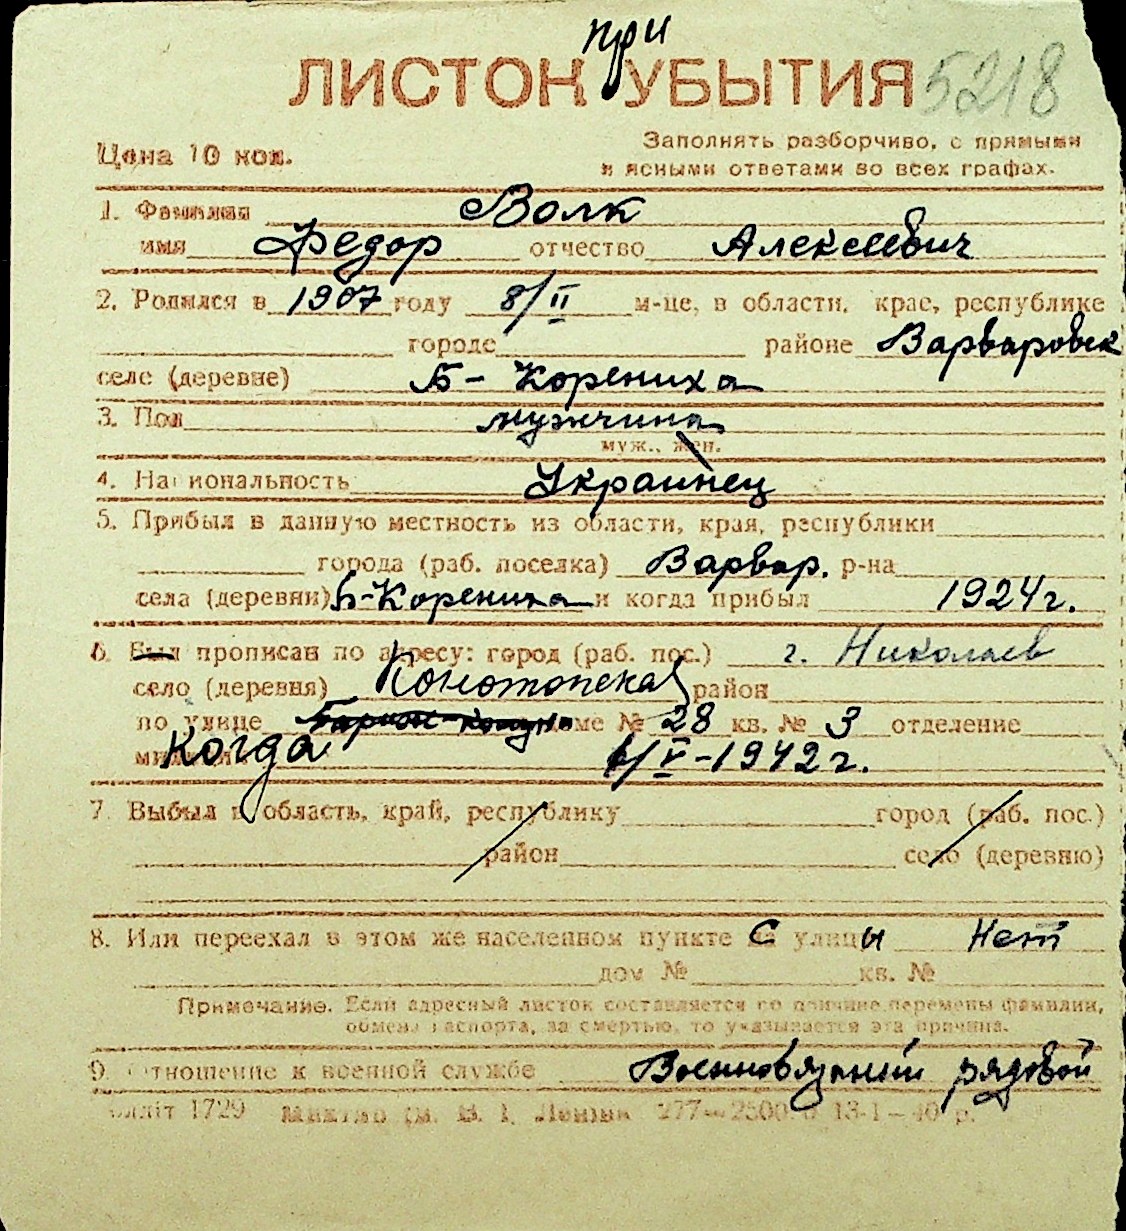 при
ЛИСТОК УБЫТИЯ 5218
Цена 10 коп.
Заполнять разборчиво, с прямыми
и ясными ответами во всех графах.
1. Фамилия Волк
имя Федор отчество Алексеевич
2. Родился в 1907 году 8/II м-це, в области, крае, республике
городе районе Варваровск
селе (деревне) Б-Корениха
3. Пол мужчина
муж., жен.
4. Национальность Украинец
5. Прибыл в данную местность из области, края, республики
города (раб. поселка) Варвар. р-на
села (деревни) Б-Корениха и когда прибыл 1924 г.
6. Был прописан по адресу: город (раб. пос.) г. Николаев
село (деревня) Конотопская район
по улице доме № 28 кв. № 3 отделение
когда 1/V-1942 г.
7. Выбыл в область, край, республику город (раб. пос.)
район село (деревню)
8. Или переехал в этом же населенном пункте с улицы Нет
дом № кв. №
Примечание. Если адресный листок составляется по причине перемены фамилии,
обмена паспорта, за смертью, то указывается эта причина.
9. Отношение к военной службе Военнобязаный рядовой
1729 277—2500 13-1—40 р.